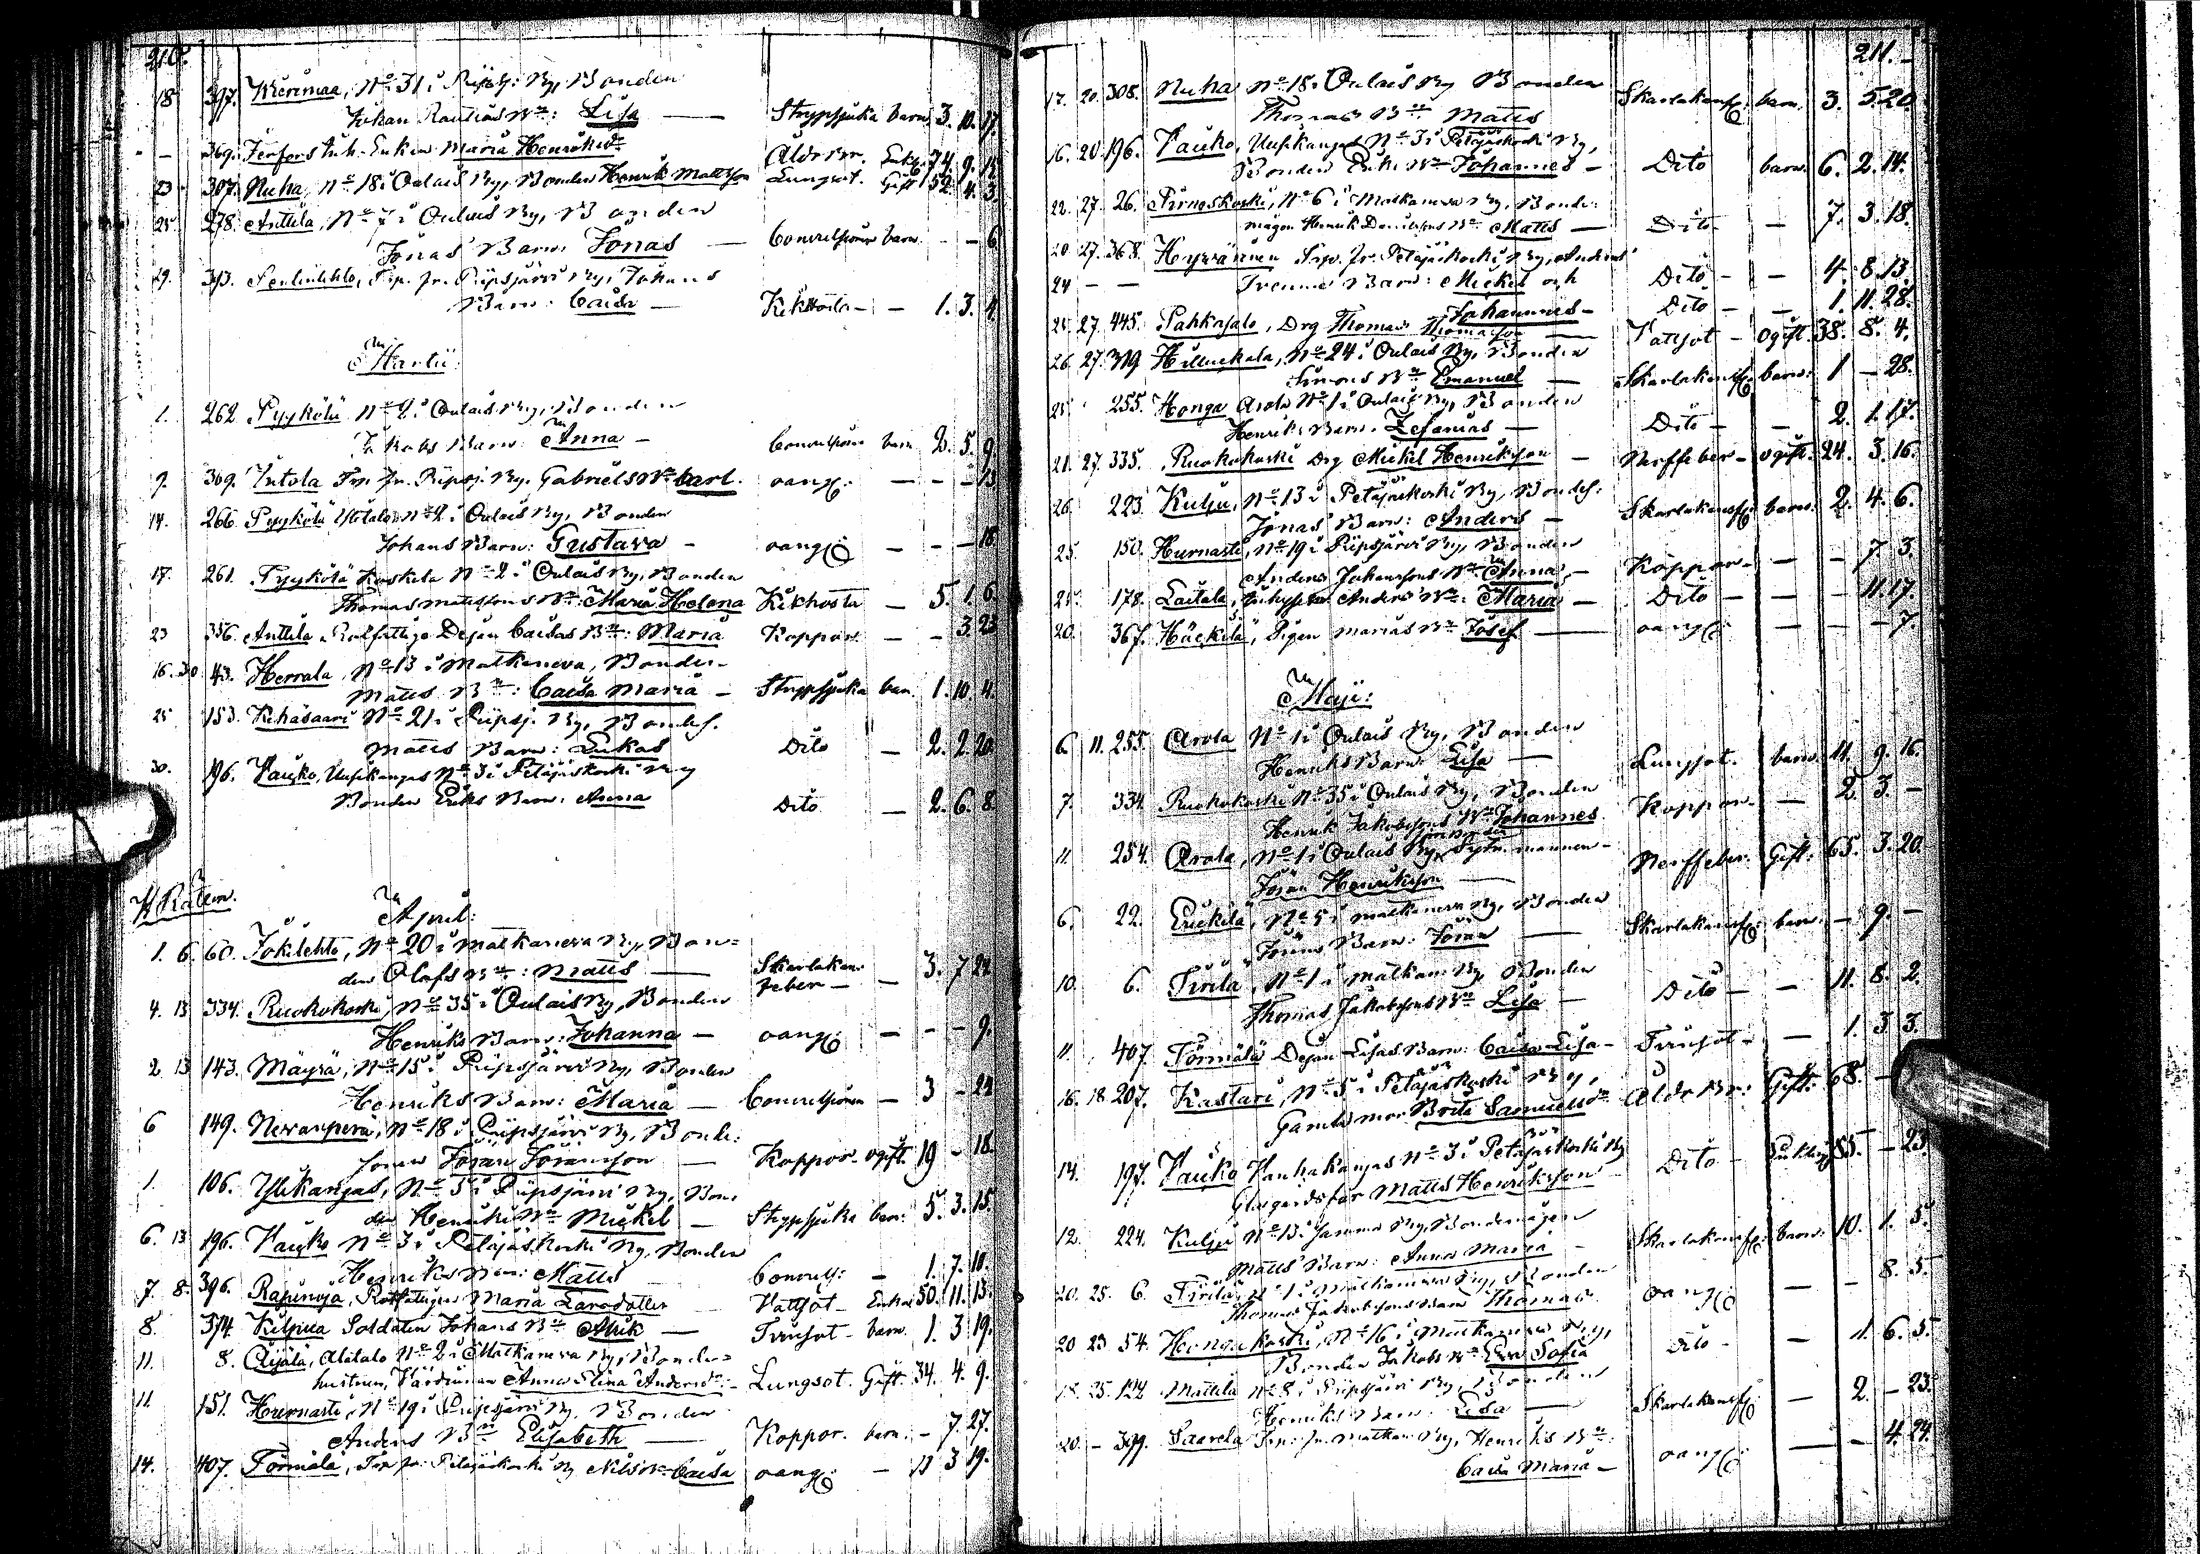 210.
18. 397. Kerimaa, No 31 i Piipsj: By, Bonden
Johan Rautias Bn: Lisa — Strypsjuka barn. 3. 10. 17.
- 369. Inh. Enkan Maria Henriksdr Åldr Br. Enka 74. 9. 12.
23. 307. Nuha, No 18 i Oulais By, Bonden Henrik Mattsson Lungsot. Gift 52. 4. 3.
25. 278. Anttila, No 7 i Oulais By, Bonden
Jonas Barn: Jonas — Convulsioner barn. - - 6.
29. 393. Trp. fr. Piipsjärvi By, Johans
Barn: Caisa — Kikhosta - - 1. 3. 4.
Martii:
1. 262. Pyykölä No 2 i Oulais By, Bonden
Jakobs Barn: Anna — Convulsion barn 2. 5. 9.
9. 309. Jutola Trp. fr. Piipsj. By. Gabriels Bn Carl. oang: — - - 13
14. 266. Pyykölä Ylitalo No 2 i Oulais By, Bonden
Johans Barn: Gustava - oang: — - - 18.
17. 261. Pyykölä Koskela No 2 i Oulais By, Bonden
Thomas Mattssons Bn: Maria Helena Kikhosta — 5. 1. 6.
23. 356. Anttila Rotfattige Dejan Caisas Bn: Maria Koppor. — - 3. 23
16. 30. 43. Herrala, No 13 i Matkaneva, Bonden
Matts Bn: Caisa Maria — Strypsjuka barn. 1. 10. 4.
25. 153. Kehäsaari No 21 i Piipsj. By, Bondes.
Matts Barn: Lukas Dito — 2. 2. 20.
30. 196. Vauko, Uusikangas No 3 i Petäjäskoski By
Bonden Eriks Barn: Anna Dito — 2. 6. 8.
April:
1. 6. 60. Jokilehto, No 20 i Matkaneva By, Bon=
den Olofs Bn: Matts — Skarlakans
feber — — 3. 7. 22.
4. 13. 334. Ruokokoski, No 35 i Oulais By, Bonden
Henriks Barn: Johanna — oang: — - - 9.
2. 13. 143. Mäyrä, No 15 i Piipsjärvi By, Bonden
Henriks Barn: Maria — Convulsioner — 3 - 22
6 149. Nevanperä, No 18 i Piipsjärvi By, Bonde:
sonen Jöran Jöransson — Koppor. ogift. 19 - 18.
1. 106. Ylikangas, No 5 i Piipsjärvi By, Bon:
den Henriks Bn Mickel — Strypsjuka barn: 5. 3. 15.
6. 13 196. Vauko No 3 i Petäjäskoski By, Bonden
Henriks Bn: Matts Convuls: — 1. 7. 18.
7. 8. 396. Rapinoja, Rotfattigen Maria Larsdotter Vattsot — Enka 50. 11. 13.
8. 374. Kilpua Soldaten Johans Bn Anik — Trinsot — barn. 1. 3. 19.
11. 8. Äijälä, Alatalo No 2 i Matkaneva By, Bonden=
hustrun, Värdinnan Anna Stina Andersdr: — Lungsot. Gift. 34. 4. 9.
11. 151. Hurnasti, No 19 i Piipsjärvi By, Bonden
Anders Bn Elisabeth — Koppor. barn: - 7. 27.
14. 407. Törmälä, Trp fr. Petäjäskoski By Nils Bn Caisa oang: — 11 3 19.
211.
17. 20. 308. Nuha No 18 i Oulais By Bonden
Thomas Bn Matts Skarlakansf: barn. 3. 5. 20.
16. 20. 196. Vauko, Uusikangas No 3 i Petäjäskoski By,
Bonden Eriks Bn Johannes — Dito barn. 6. 2. 14.
22. 27. 26. Pirneskoski, No 6 i Matkaneva By, Bonde:
mågen Henrik Danielssons Bn Matts — Dito — 7. 3. 18.
20. 27. 368. Hyvärinen Trp. fr. Petäjäskoski By, Anders
24 — — Trenne Barn: Mickel och Dito — — 4. 8. 13.
Johannes — Dito — — 1. 11. 28.
25. 27. 445. Pahkasalo, Drg Thomas Thomasson Vattsot — Ogift. 38. 8. 4.
26. 27. 319 Hilluckala, No 24 i Oulais By, Bonden
Simons Bn Emanuel — Skarlakansf: barn: 1 — 28.
25. 255. Honga Arola No 1 i Oulais By, Bonden
Henriks Barn: Zefanias — Dito — — 2. 1. 17.
21. 27. 335. Ruokokoski Drg Mickel Henriksson — Nerffeber — ogift. 24. 3. 16.
26. 223. Kulju, No 13 i Petäjäskoski By, Bondes:
Jonas Barn: Anders — Skarlakansf: barn: 2. 4. 6.
25. 150. Hurnasti, No 19 i Piipsjärvi By, Bonden
Anders Johanssons Bn Anna — Koppor — — - 7. 3.
25. 178. Laitala, Anders Bn: Maria — Dito — — - 11. 17.
20. 367. Häckilä, Pigan Marias Bn Josef — oang: — - - 7.
Maji:
6. 11. 255. Arola No 1 i Oulais By, Bonden
Henriks Barn: Lisa — Lungsot. barn. 11. 9. 16.
7. 334. Ruokokoski No 35 i Oulais By, Bonden
Henrik Jakobssons Bn Johannes Koppor — — 2. 3. —
11. 254. Arola, No 1 i Oulais By, Sytn. mannen —
Jöran Henriksson — Nerffeber: Gift: 65. 3. 20.
6. 22. Erickilä, No 5 i Matkaneva By, Bonden
Jörans Barn: Jöran — Skarlakansf: barn: — 9. —
10. 6. Tirilä, No 1 i Matkan: By, Bonden
Thomas Jakobssons Bn Lisa — Dito — — 11. 8. 2.
11. 407. Törmälä Dejan Lisas Barn: Caisa Lisa — Trinsot — — 1. 3. 3.
16. 18. 207. Kastari, No 5 i Petäjäskoski By,
Gamla mor Brita Samuelsdr Åldr Br: Gift: 68. —
14. 197. Vauko Vanhakangas No 3 i Petäjäskoski By
Matts Henriksson Dito — 85. — 23.
12. 224. Kulju No 13 i samma By, Bondemågen
Matts Barn: Anna Maria — Skarlakansf: barn: 10. 1. 5.
20. 25. 6. Tirilä, No 1 i Matkaneva By, Bonden
Thomas Jakobssons Barn Thomas. oang: — 8. 5.
20 23. 54. Hongakoski, No 16 i Matkaneva By,
Bonden Jakobs Bn Eva Sofia Dito — — 11. 6. 5.
18. 25. 122. Mattila No 8 i Piipsjärvi By, Bonden
Henriks Barn: Lisa — Skarlakansf: — 2. — 23.
20. - 399. Saarela Trp: fr. Matkan By, Henriks Bn:
Caisa Maria — oang: — — 4. 24.